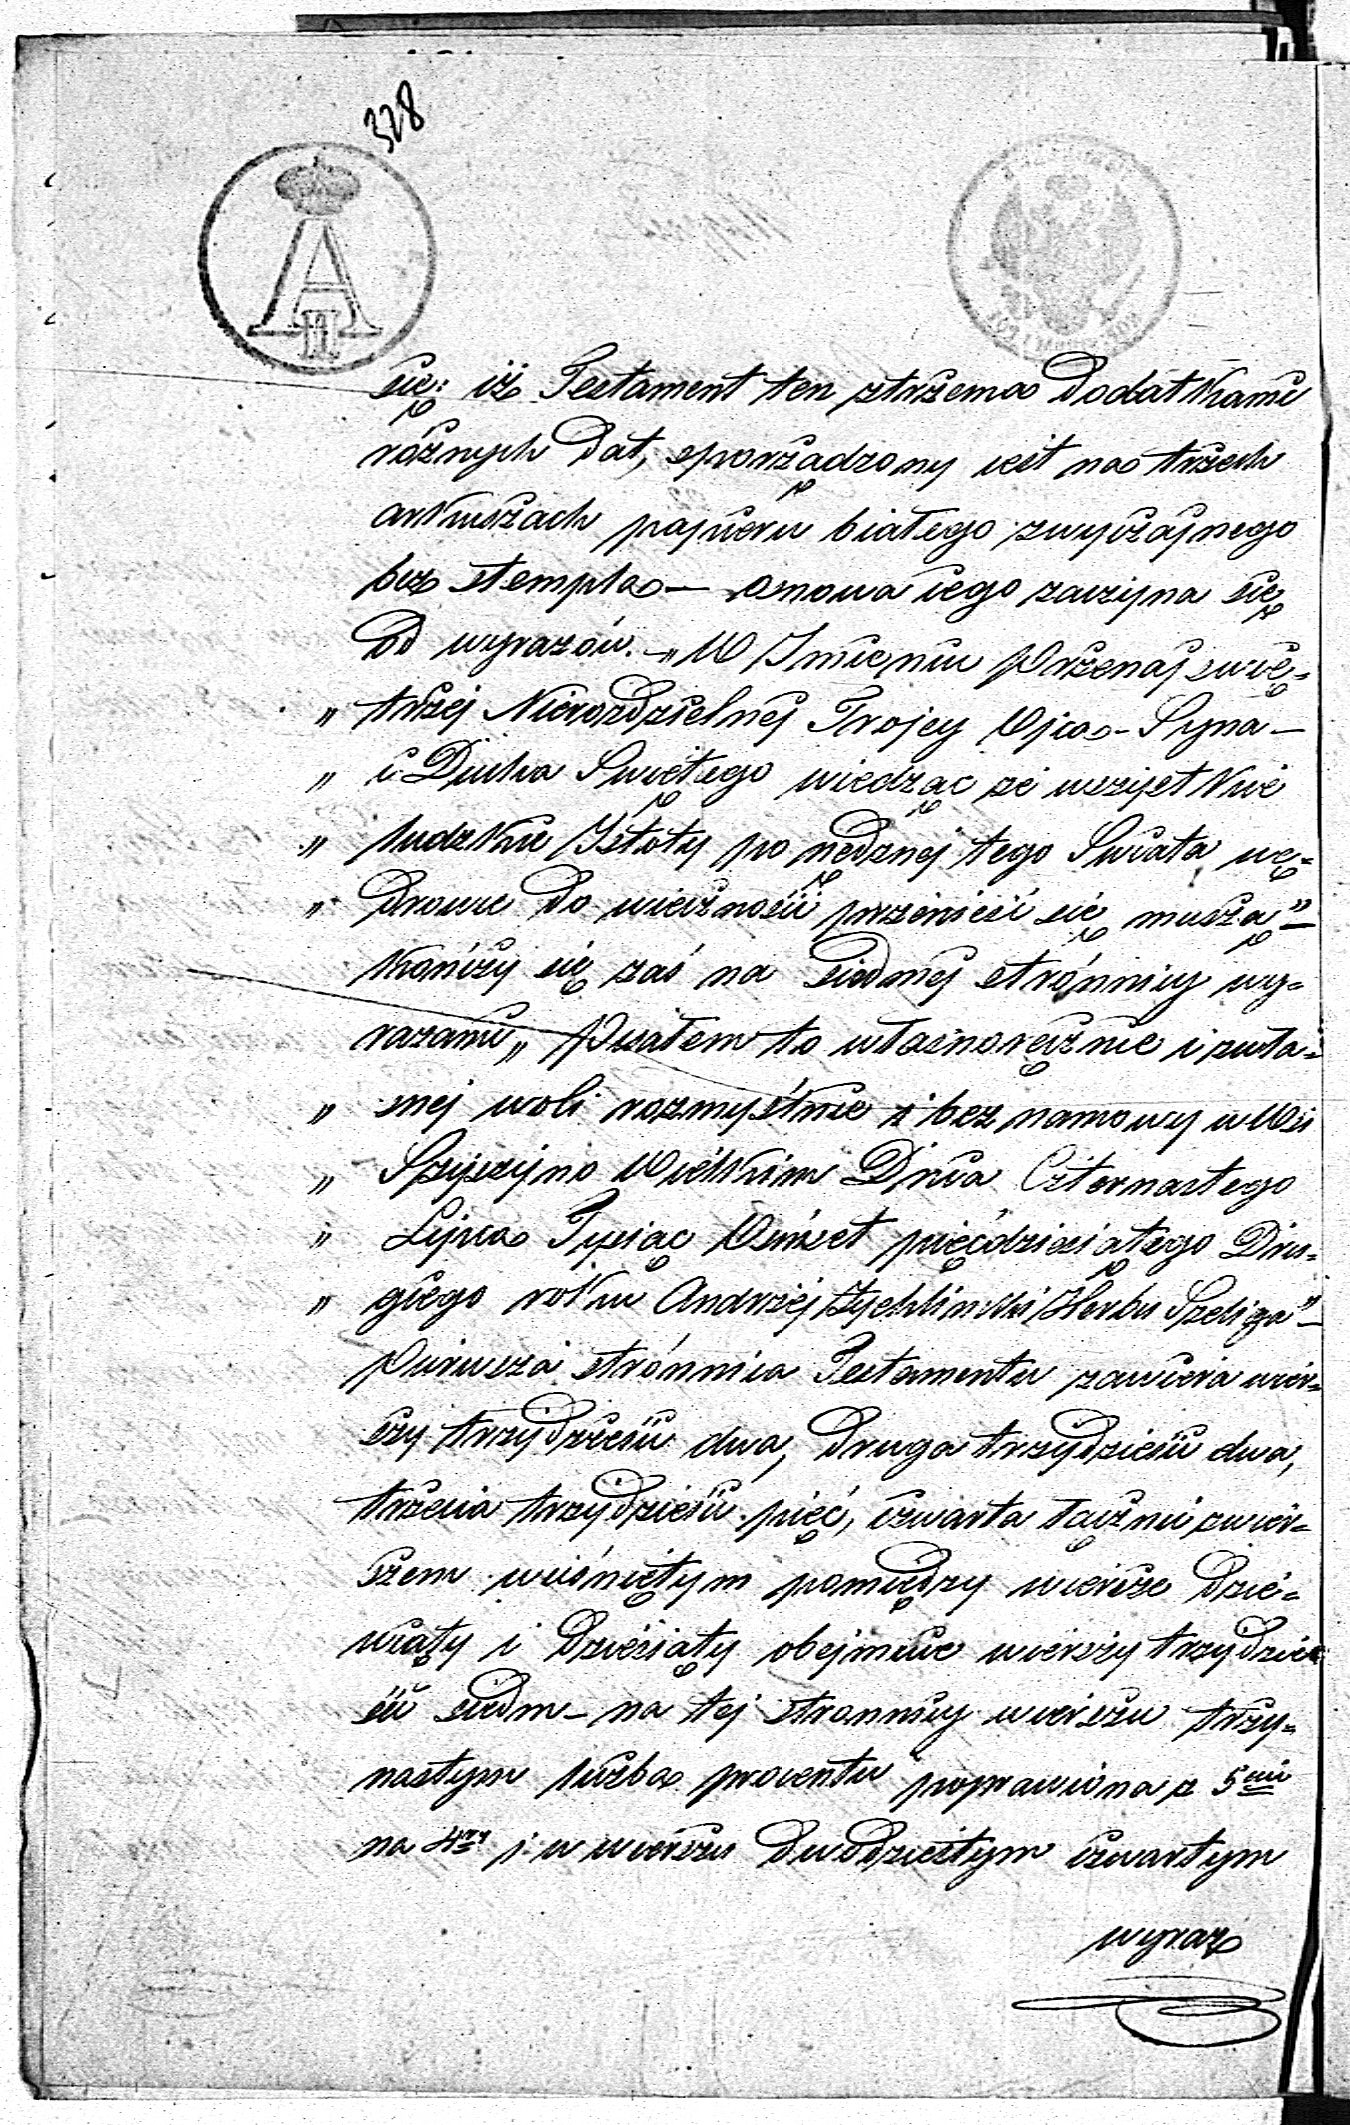 328
A
II
się: iż Testament ten ztrzema Dodatkami
różnych Dat, sporządzony iest na trzech
arkuszach papieru białego zwyczajnego
bez stempla — osnowa iego zaczyna się
Od wyrazów. — „W Imieniu Przenajświę-
„ tszej Nierozdzielnej Trojcy Ojca - Syna —
„ i Ducha Swiętego wiedząc że wszystkie
„ ludzkie Istoty po nędznej tego Swiata wę-
„ drowce do wieczności przenieść się muszą" —
kończy się zaś na siedmej strónnicy wy-
razami „ Pisałem to własnoręcznie i zwła-
„ snej woli rozmyślnie i bez namowy w Wsi
„ Szyszyno Wielkim Dnia Czternastego
„ Lipca Tysiąc Ośmset pięćdziesiątego Dru-
„ giego roku Andrzej Zychlinski Herbu Szeliga" —
Pierwsza strónnica Testamentu zawiera wier-
szy trzydzieści dwa, Druga trzydzieści dwa,
trzecia trzydzieści pięć, czwarta łącznie zwier-
szem wciśniętym pomiędzy wiersze Dzie-
wiąty i Dziesiąty obejmuie wierszy trzydzie
ści siedm — na tej stronnicy wierszu trzy-
nastym liczba procentu poprawiona z 5ciu
na 4ry i w wierszu Dwódziestym czwartym
wyraz